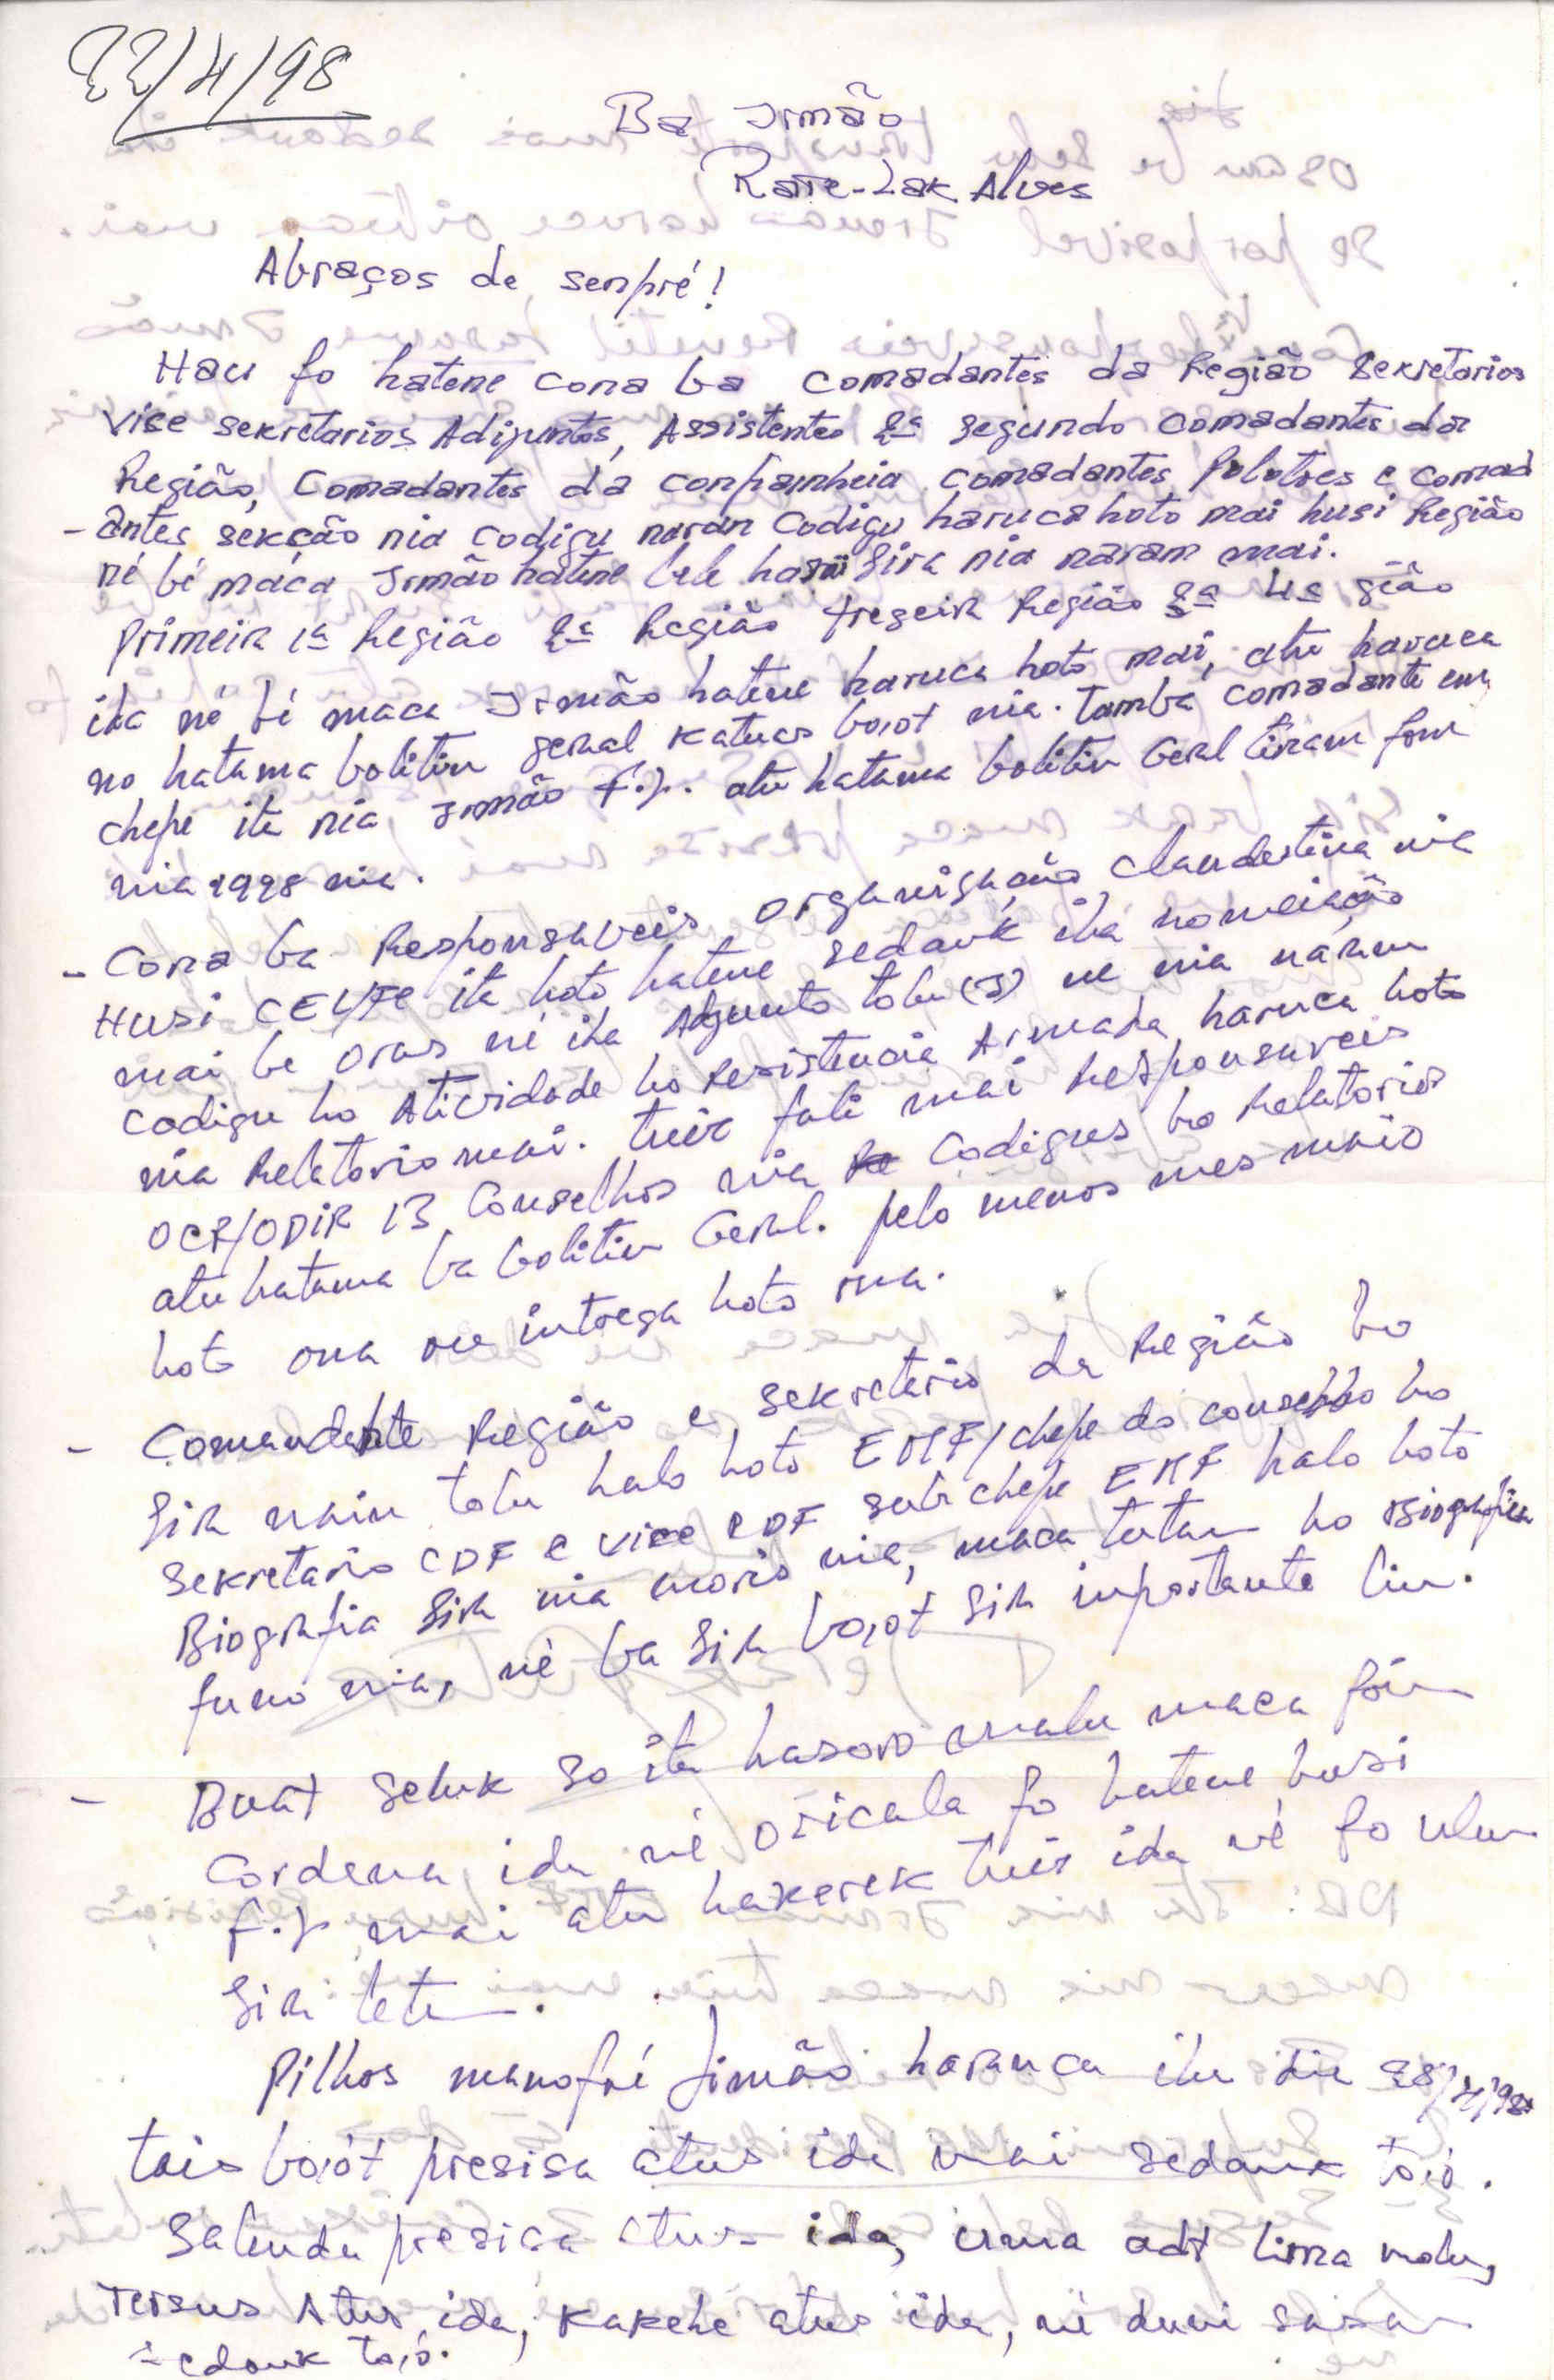 22/4/98
Ba Irmão
Rate-Lak Alves
Abraços de senpré!
Hau fo hatene cona ba comadantes da Região Sekretarios
vise sekretarios Adijuntos, Assistentes 2ª segundo comadantes da
Região, Comadantes da conpamheia comadantes Polotoes e comad
- antes seksão nia codigu naran Codigu haruca hoto mai husi Região
né bé maca Irmão hatene bele sira nia naram mai.
Primeira 1ª Região 2ª Região tregeira Região 3ª 4ª gião
iha né bé maca Irmão hatene haruca hoto mai, atu haruca
no hatama bolitin geral katuas bo,ot nia. Tamba comadante em
chepe ita nia Irmão F.J. atu hatama bolitin Geral tinam foun
nia 1998 nia.
- Cona ba Responsaveis organisação clandestina nia
Husi CEL/FC ita hoto hatene sedauk iha nomeiação
mai be oras né iha Adjunto tolu (3) ne nia naram
codigu ho Atividade ho Resistencia Armada haruca hoto
nia Relatorio mai. Tuir fali mai Responsaveis
OCR/ODIR 13 Conselhos nia Codigus ho Relatorios
atu hatama ba bolitin Geral. pelo menos mes maio
hoto ona ou intrega hoto ona.
- Comandante Região e sekretario da Região ho
Sira nain tolu halo hoto EMF/chepe do conselho ho
Sekretario CDF e vice CDF sub chepe EMF halo hoto
Biografia Sira nia moris nia, maca tutan ho Biografia
funo nia, né ba Sira bo,ot Sira inportante liu.
- Buat seluk so ita hasoro malu maca foin
Cordena ida né, oricala fo hatene husi
F.J mai atu hakerek tuir ida né fo ulun
Sira letu.
Pilhos manofoé Jimão haruca iha dia 28/4/98
tais bo,ót presisa atus ida mai sedauk to,ó.
Salenda presisa atus ida, uma adt lima nolu,
Tersus Atus ida, Kakehe atus ida, né duni sasan
sedauk to,ó.